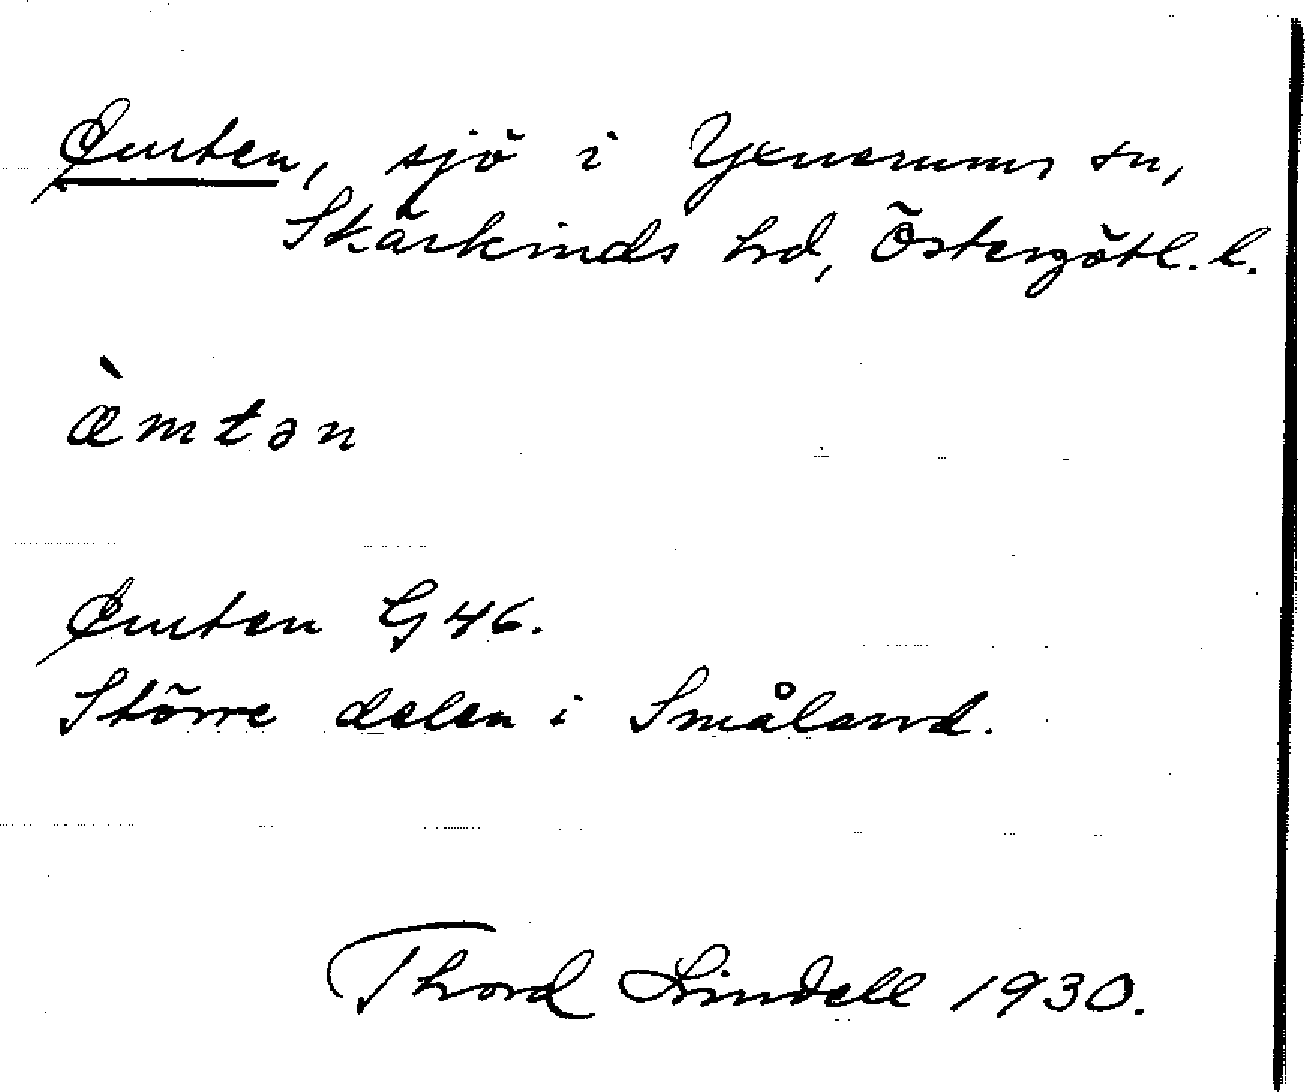 Emten, sjö i Yxnerums sn,
Skärkinds hd, Östergötl. l.
æ̀mtən
Emten G 46.
Större delen i Småland.
Thord Lindell 1930.